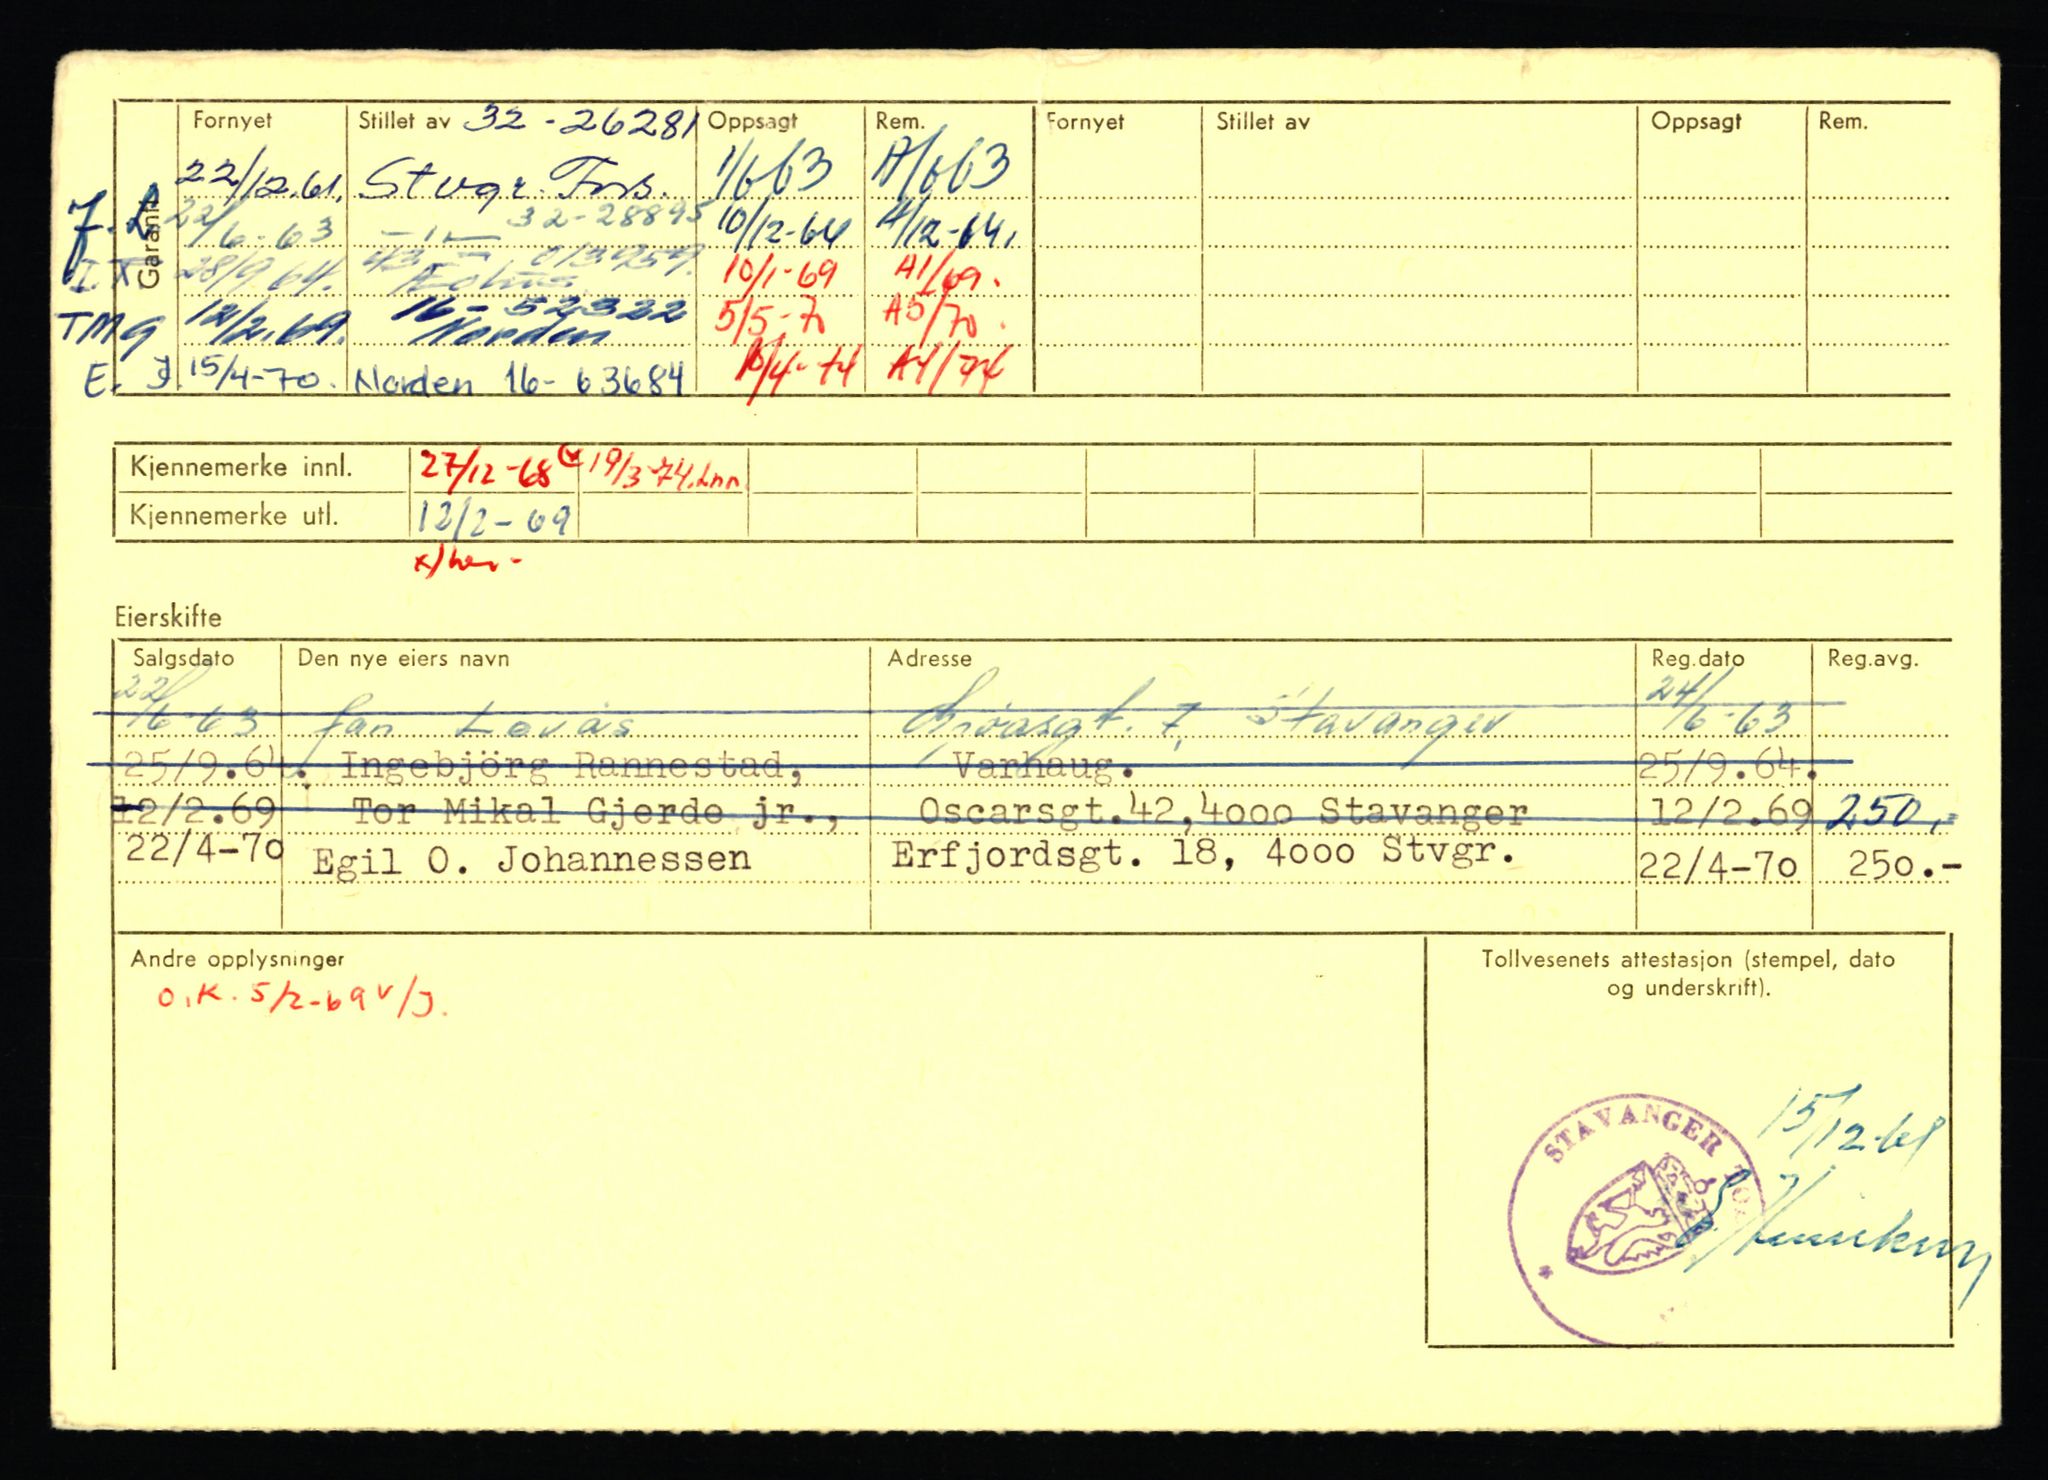 Fornyet Stillet av 32-26281 Oppsagt Rem. Fornyet Stillet av Oppsagt Rem.
Garanti
22/12.61. Stvgr. Fors. 1/6 63 A/6 63
J.L 22/6-63 32-28895 10/12-64 A/12-64.
28/9 64. 10/1-69 A1/69.
TMG 12/2.69. 16-52322 Norden 5/5-70 A5/70.
E.J. 15/4-70. Norden 16-63684 10/4-74 A4/74
Kjennemerke innl. 27/12-68 19/3-74.Inn.
Kjennemerke utl. 12/2-69
Eierskifte
Salgsdato Den nye eiers navn Adresse Reg.dato Reg.avg.
22/6-63 Jan Lovås 7, Stavanger 24/6-63
25/9.64. Ingebjörg Rannestad, Varhaug. 25/9.64.
12/2.69 Tor Mikal Gjerde jr., Oscarsgt.42,4000 Stavanger 12/2.69 250,-
22/4-70 Egil O. Johannessen Erfjordsgt. 18, 4000 Stvgr. 22/4-70 250.-
Andre opplysninger
O.K. 5/2-69 v/J.
Tollvesenets attestasjon (stempel, dato
og underskrift).
15/12-61
STAVANGER